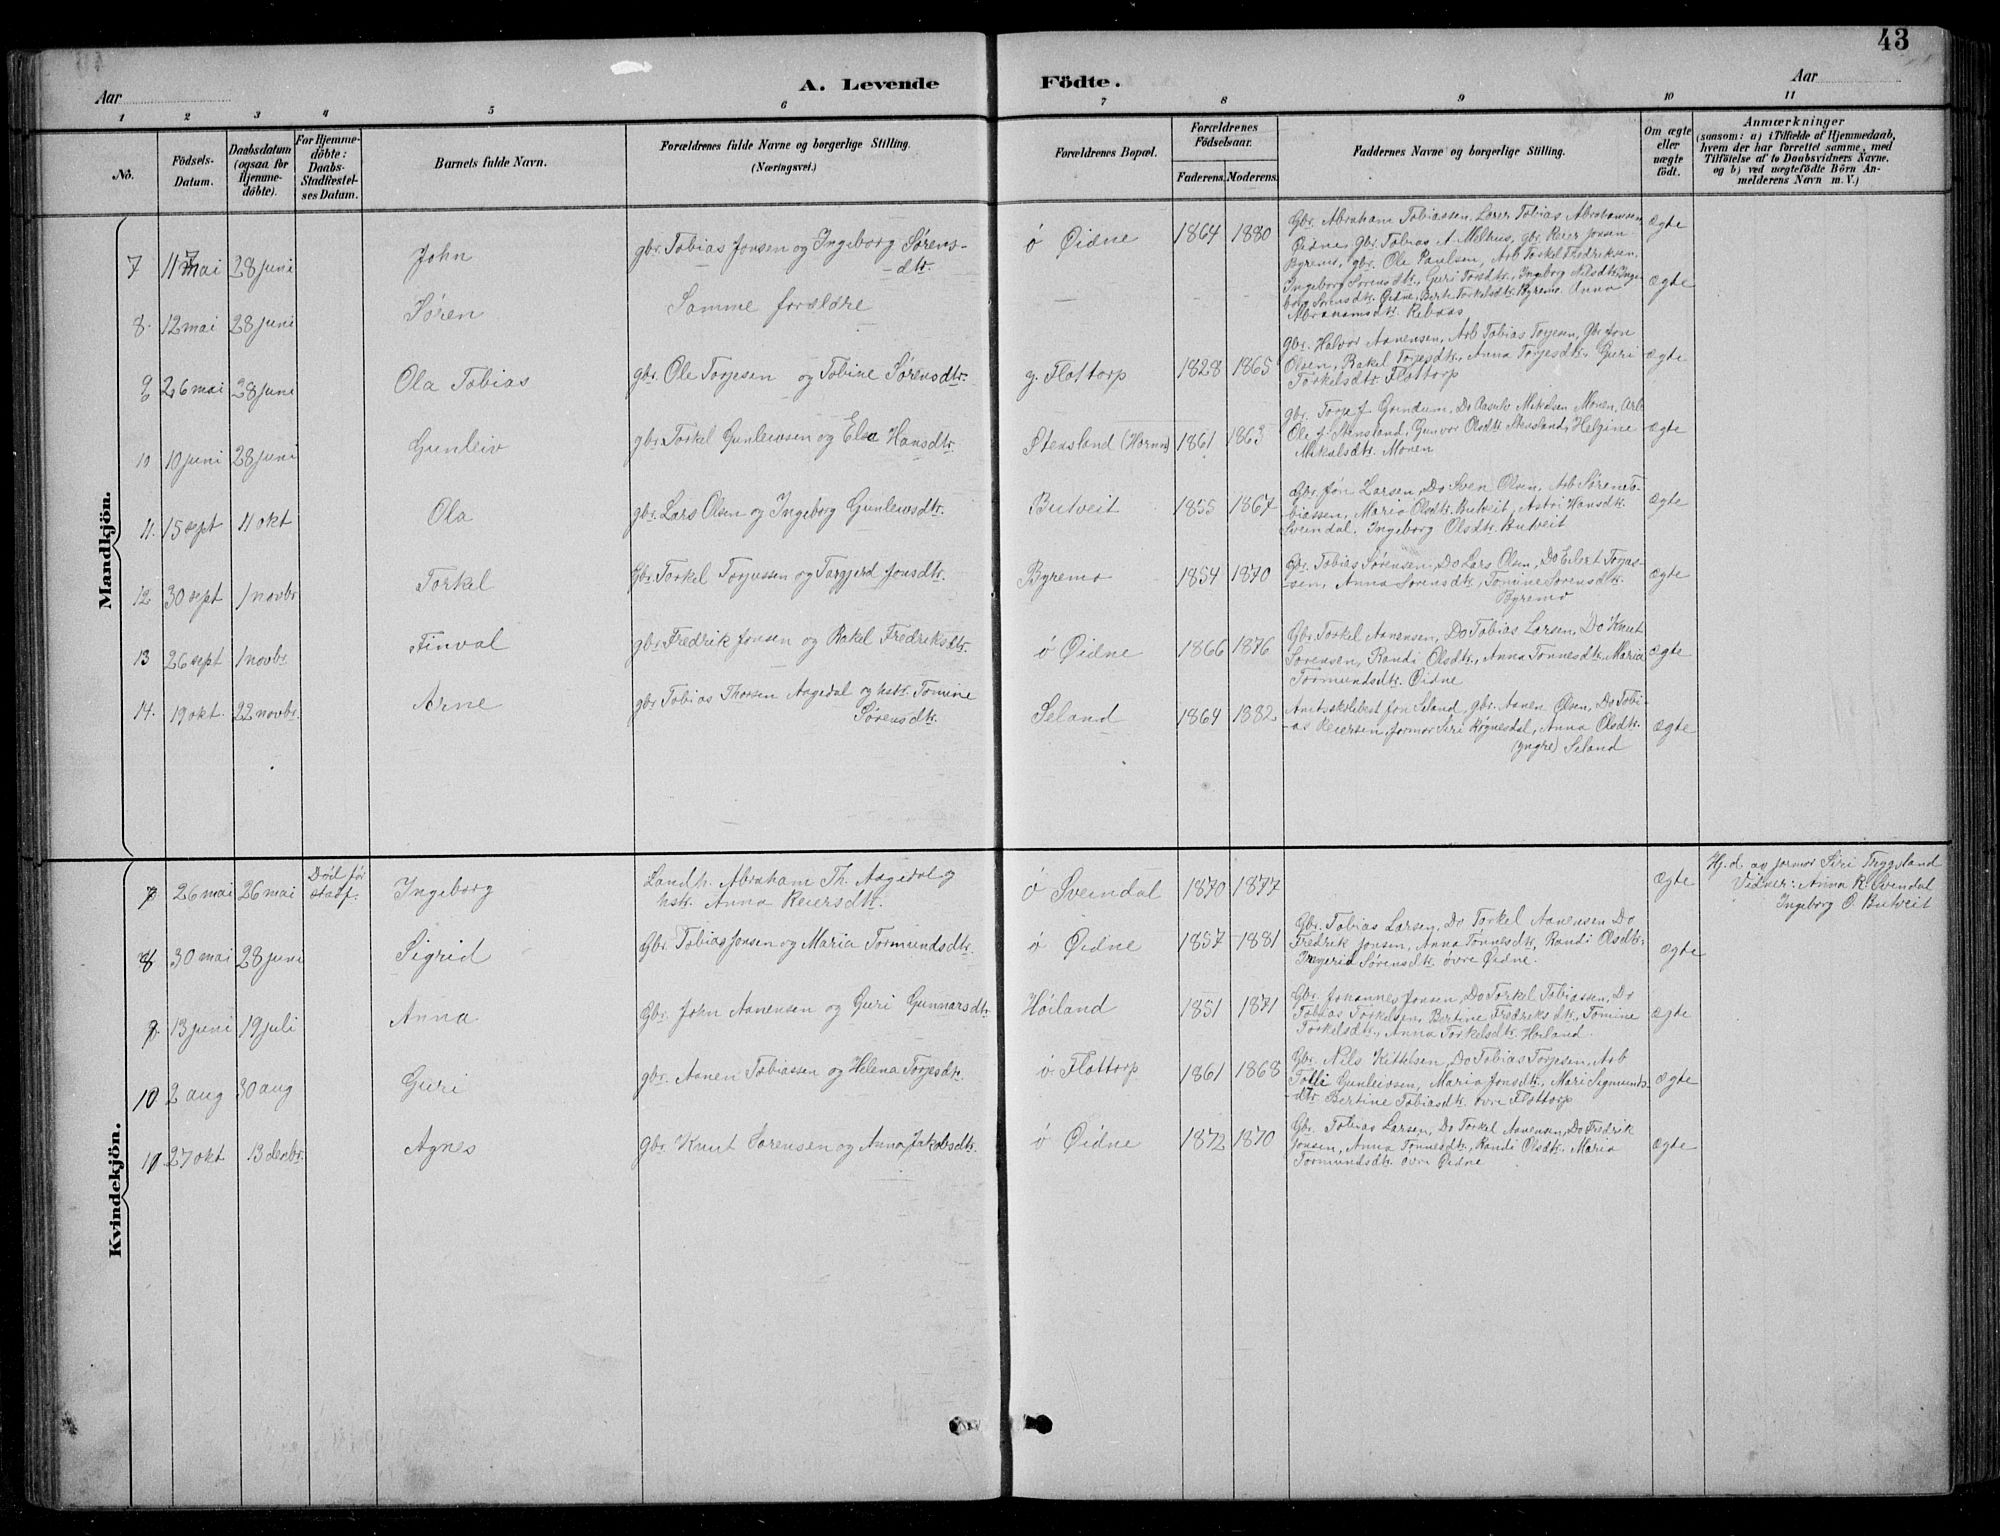 43
A. Levende Födte.
Aar Aar
1 2 3 4 5 6 7 8 9 10 11
No.
Födsels-Datum.
Daabsdatum (ogsaa for Hjemmedöbte).
For Hjemmedöbte: Daabs-Stadfæstelses Datum.
Barnets fulde Navn.
Forældrenes fulde Navne og borgerlige Stilling.
(Næringsvei.)
Forældrenes Bopæl.
Forældrenes Födselsaar.
Faderens. Moderens.
Faddernes Navne og borgerlige Stilling.
Om ægte eller uægte födt.
Anmærkninger
(saasom: a) i Tilfælde af Hjemmedaab, hvem der har forrettet samme, med Tilföielse af to Daabsvidners Navne, og b) ved uægtefödte Börn Anmelderens Navn m. V.)
Mandkjön.
7 11 mai 28 juni John gbr. Tobias Jonsen og Ingeborg Sørens-
dtr. ó Øidne 1864 1880 Gbr. Abraham Tobiassen, Lærer Tobias Abrahamsen
Øidne, gbr. Tobias A. Melhus, gbr. Reier Jonsen
Byremo, gbr. Ole Paulsen, Arb Torkel Fredriksen,
Ingeborg Sørensdtr., Guri Torsdtr., Ingeborg Nilsdtr., Inge-
borg Sørensdtr. Øidne, Berte Torkelsdtr. Byremo. Anna
Abrahamsdtr. Rebaas ægte
8. 12 mai 28 juni Søren Samme forældre ægte
9 26 mai 28 juni Ola Tobias gbr. Ole Torjesen og Tobine Sørensdtr. y. Flottorp 1828 1865 gbr. Halvor Aanensen, Arb Tobias Torjesen, Gbr. Jon
Olsen, Rakel Torjesdtr., Anna Torjesdtr., Guri
Torkelsdtr. Flottorp ægte
10 10 juni 28 juni Gunleiv gbr. Torkel Gunleivsen og Elsa Hansdtr. Stensland (Hornnes) 1861 1863 gbr. Torje J. Grindum, Do Aasulv Mikalsen Monen, Arb
Ole J. Stensland, Gunvor Olsdtr. Stensland, Helgine
Mikalsdtr. Monen ægte
11. 15 sept 11 okt Ola gbr. Lars Olsen og Ingeborg Gunleivsdtr. Butveit 1855 1867 Gbr. Jon Larsen, Do Sven Olsen, Arb Søren To-
biassen, Maria Olsdtr. Butveit, Astri Hansdtr.
Sveindal, Ingeborg Olsdtr. Butveit ægte
12 30 sept 1 novbr Torkel Gbr Torkel Torjussen og Targjerd Jonsdtr. Byremo 1854 1870 Gbr. Tobias Sørensen, Do Lars Olsen, Do Eilert Torjus-
sen, Anna Sørensdtr., Tomine Sørensdtr.
Byremo ægte
13 26 sept 1 novbr. Finval gbr. Fredrik Jonsen og Rakel Fredriksdtr. ó Øidne 1866 1876 Gbr. Torkel Aanensen, Do Tobias Larsen, Do Knut
Sørensen, Randi Olsdtr., Anna Tønnesdtr., Maria
Tormundsdtr. Øidne ægte
14. 19 okt. 22 novbr. Arne gbr. Tobias Thorsen Aagedal og hstr. Tomine
Sørensdtr. Seland 1864 1882 Amtsskolebest Jon Seland, gbr. Aanen Olsen, Do Tobi-
as Reiersen, formor Siri Røgnesdal, Anna Olsdtr.
(yngre) Seland ægte
Kvindekjön.
7 26 mai 26 mai Død før
stadf. Ingeborg Landh. Abraham Th. Aagedal og
hstr. Anna Reiersdtr. ó Sveindal 1870 1877 ægte Hj. d. av jormor Siri Tryggsland
Vidner: Anna R. Svendal
Ingeborg O. Butveit
8 30 mai 28 juni Sigrid Gbr. Tobias Jonsen og Maria Tormundsdtr. ó Øidne 1857 1881 Gbr. Tobias Larsen, Do Torkel Aanensen Do
Fredrik Jonsen, Anna Tønnesdtr, Randi Olsdtr.,
Sørensdtr. övre Øidne. ægte
9. 13 juni 19 juli Anna Gbr. John Aanensen og Guri Gunnarsdtr. Høiland 1851 1871 Gbr. Johannes Jonsen, Do Torkel Tobiassen, Do
Tobias Torkelsen, Bertine Fredriksdtr, Tomine
Torkelsdtr., Anna Torkelsdtr. Høiland. ægte
10 2 aug 30 aug Guri gbr. Aanen Tobiassen og Helena Torjesdtr. ó. Flottorp 1861 1868 Gbr. Nils Kittelsen, Do Tobias Torjesen, Arb
Tolli Gunleivsen, Maria Jonsdtr., Mari Sigmunds-
dtr Bertine Tobiasdtr. övre Flottorp ægte
11 27 okt 13 decbr. Agnes Gbr. Knut Sørensen og Anna Jakobsdtr. ó Øidne 1872 1870 Gbr. Tobias Larsen, Do Torkel Aanensen, Do Fredrik
Jonsen, Anna Tønnesdtr., Randi Olsdtr. Maria
Tormundsdtr. övre Øidne ægte